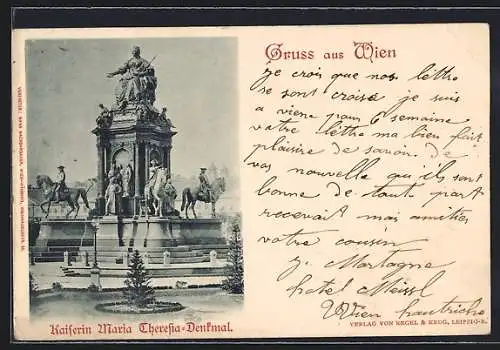 Gruss aus Wien
je crois que nos lettre
se sont croisé je suis
a viene pour 6 semaine
votre lettre ma bien fait
plaisire de savoir. De
vos nouvelle que ils sont
bonne de tout part
recevait mai amitier
votre cousin
J. Martogne
hotel Meissl
Wien hautriche
Kaiserin Maria Theresia-Denkmal.
VERLAG VON REGEL & KRUG, LEIPZIG-R.